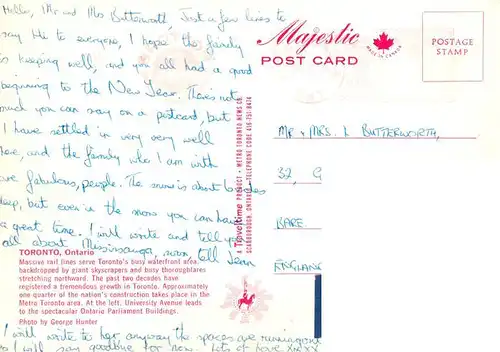 Hello, Mr and Mrs Butterworth, Just a few lines to
say Hi to everyone, I hope the family
is keeping well, and you all had a good
beginning to the New Year. There's not
much you can say on a postcard, but
I have settled in very very well
here, and the family who I am with
are fabulous, people. The snow is about inches
deep, but even in the snow you can have
a great time. I will write and tell you
all about Mississauga, soon, tell Jean
I will write to her anyway the spaces are running out
so I will say goodbye for now. Lots of love XXXXX
TORONTO, Ontario
Massive rail lines serve Toronto's busy waterfront area,
backdropped by giant skyscrapers and busy thoroughfares
stretching northward. The past two decades have
registered a tremendous growth in Toronto. Approximately
one quarter of the nation's construction takes place in the
Metro Toronto area. At the left, University Avenue leads
to the spectacular Ontario Parliament Buildings.
Photo by George Hunter
A Traveltime PRODUCT - METRO TORONTO NEWS CO.
SCARBOROUGH, ONTARIO - TELEPHONE CODE 416-751-8474
Majestic
POST CARD
MADE IN CANADA
POSTAGE
STAMP
MR & MRS. L BUTTERWORTH,
32, G
BARE
ENGLAND